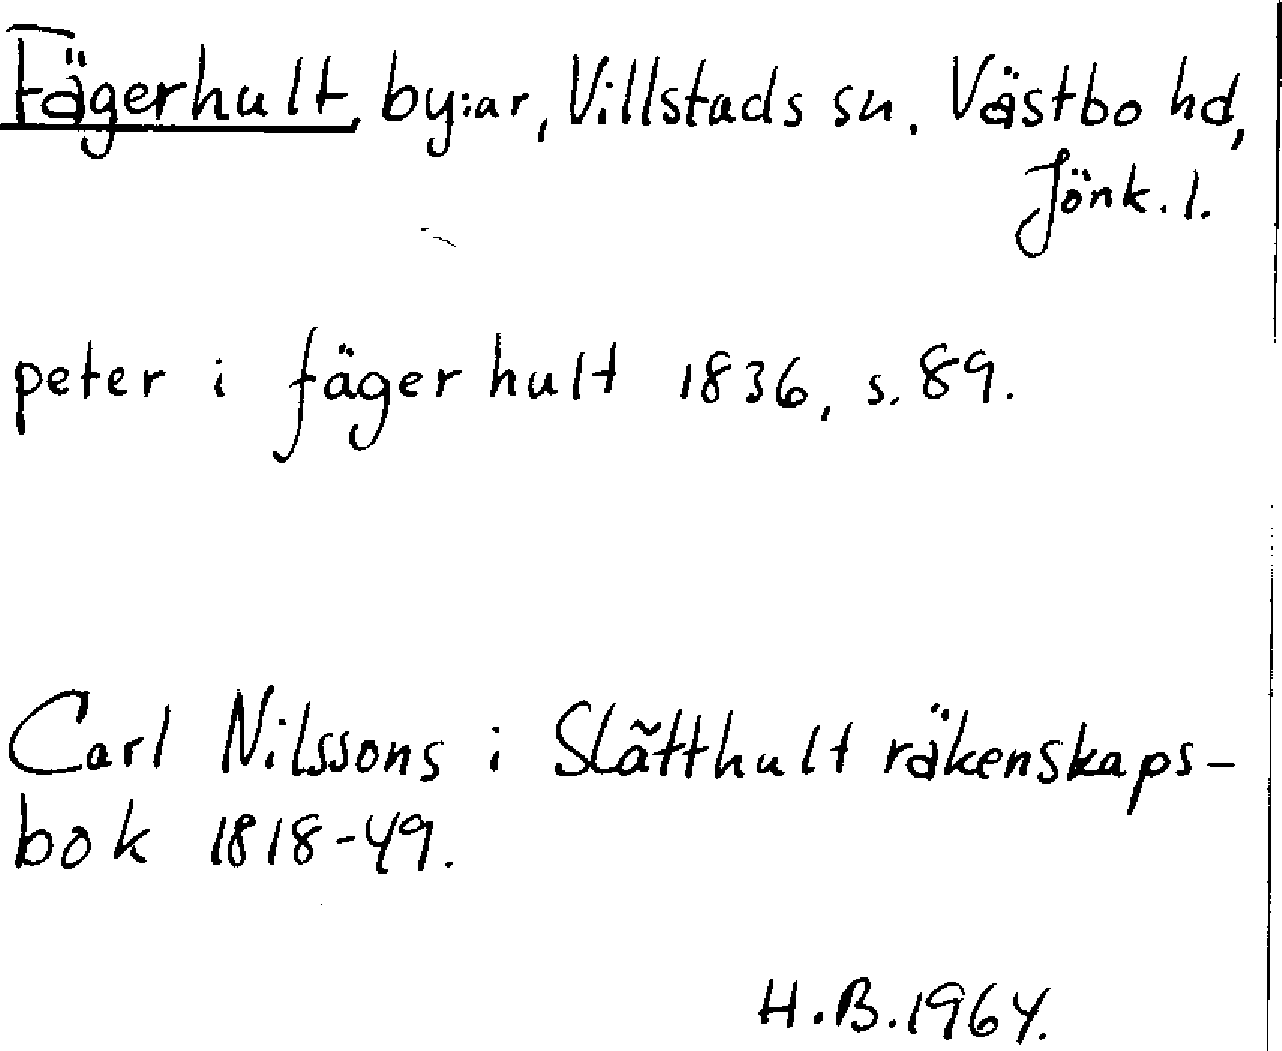 Fägerhult, by:ar, Villstads sn. Västbo hd,
Jönk. l.
peter i fäger hult 1836, s. 89.
Carl Nilssons i Slätthult räkenskaps-
bok 1818-49.
H.B. 1964.